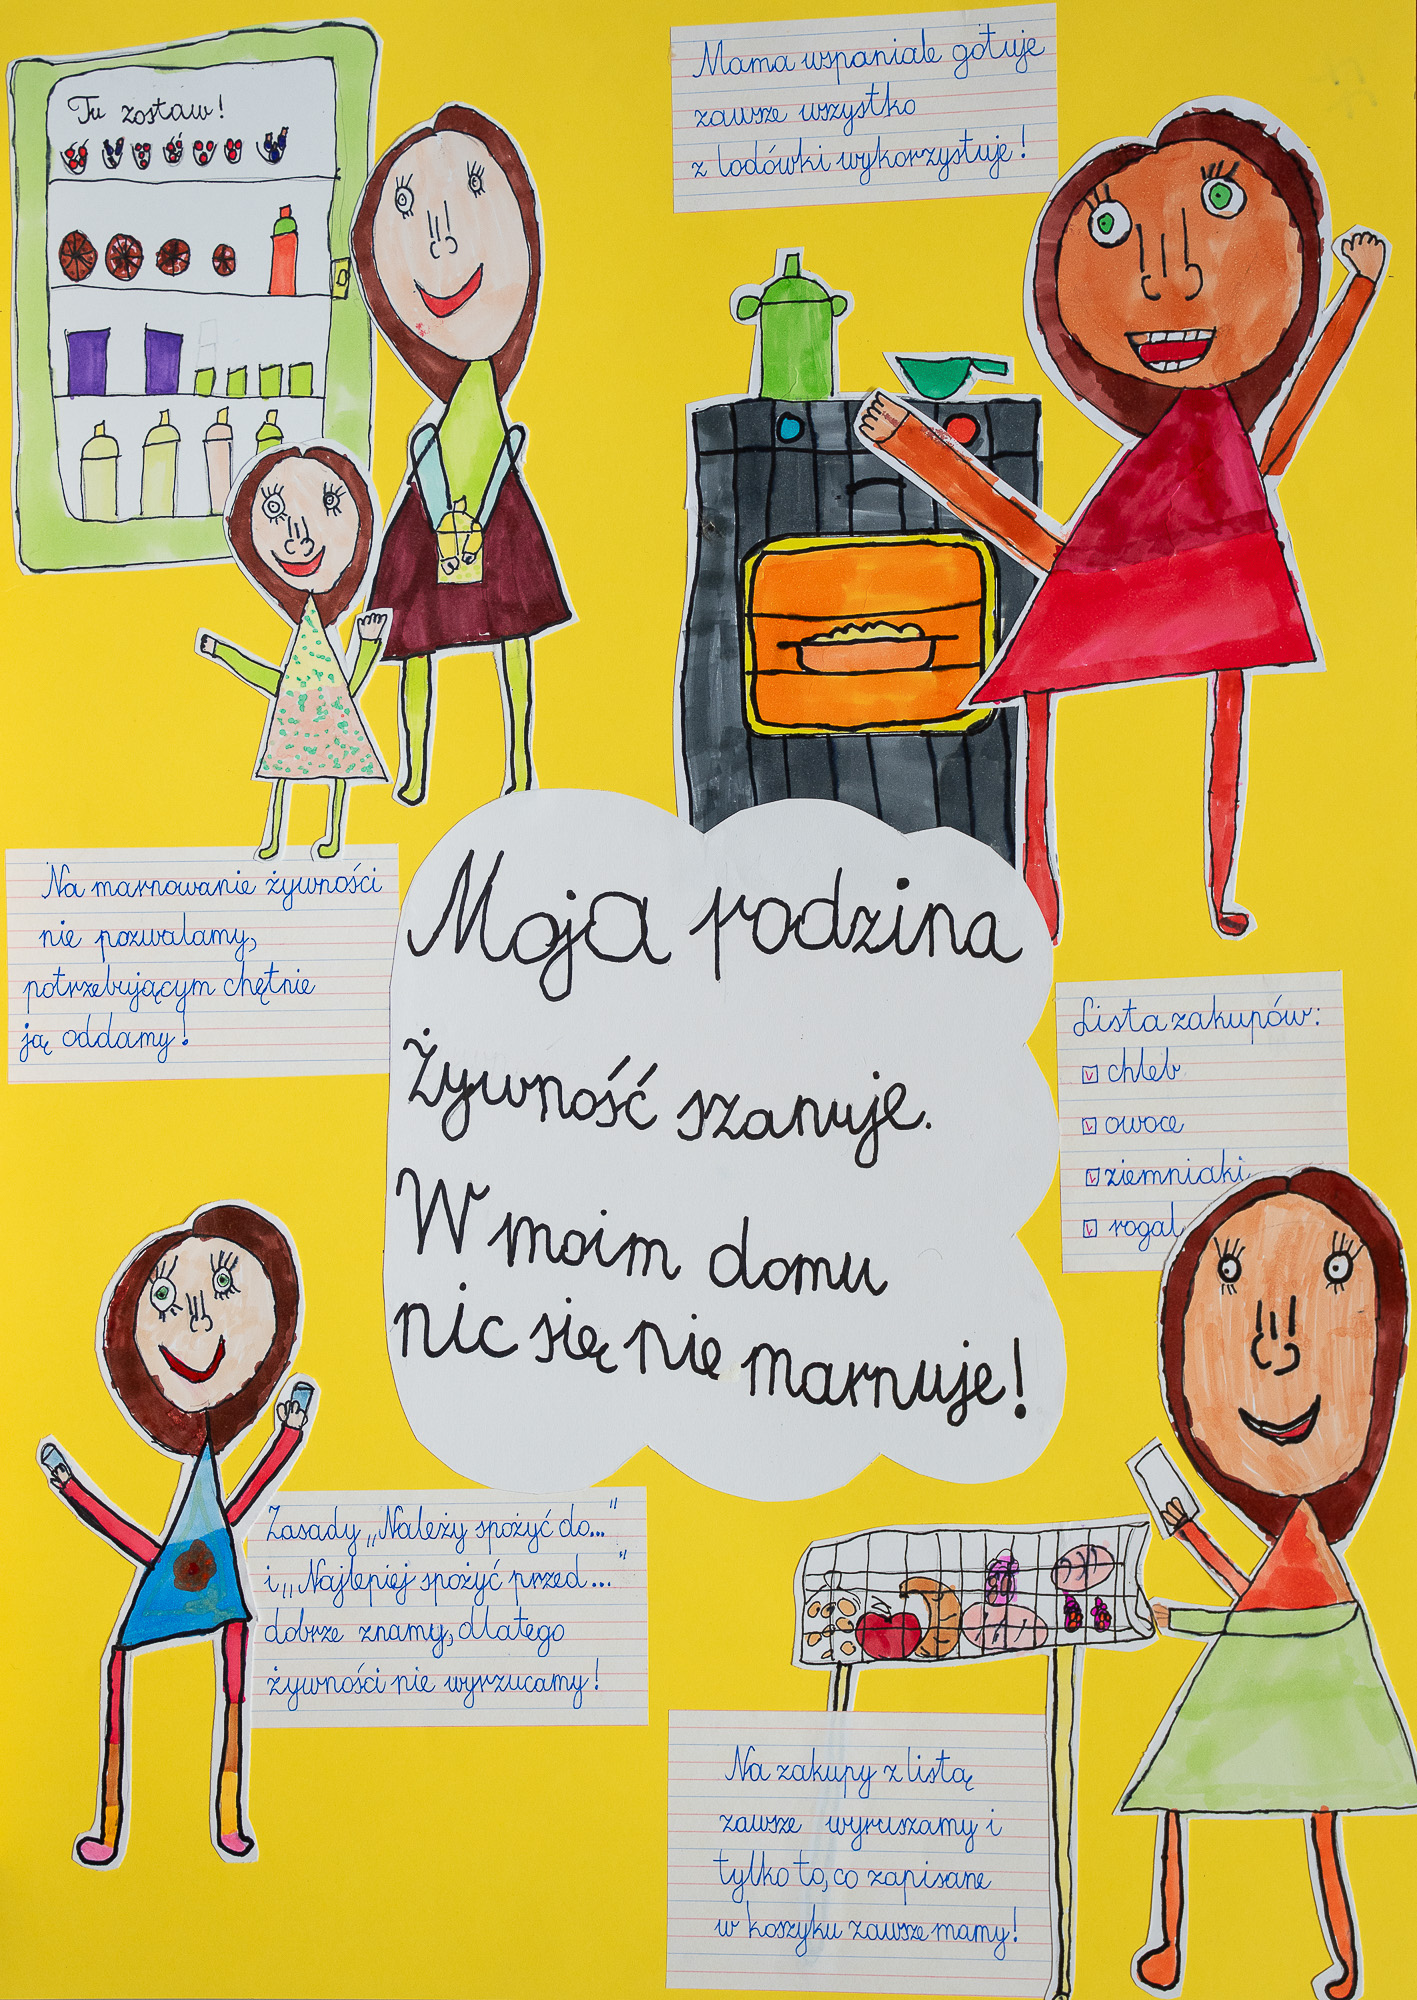 Tu zostaw!
Mama wspaniale gotuje
zawsze wszystko
z lodówki wykorzystuje!
Na marnowanie żywności
nie pozwalamy,
potrzebującym chętnie
ją oddamy!
Moja rodzina
Żywność szanuje.
W moim domu
nic się nie marnuje!
Lista zakupów:
chleb
owoce
ziemniaki
rogal
Zasady „Należy spożyć do..."
i „Najlepiej spożyć przed..."
dobrze znamy, dlatego
żywności nie wyrzucamy!
Na zakupy z listą
zawsze wyruszamy i
tylko to, co zapisane
w koszyku zawsze mamy!